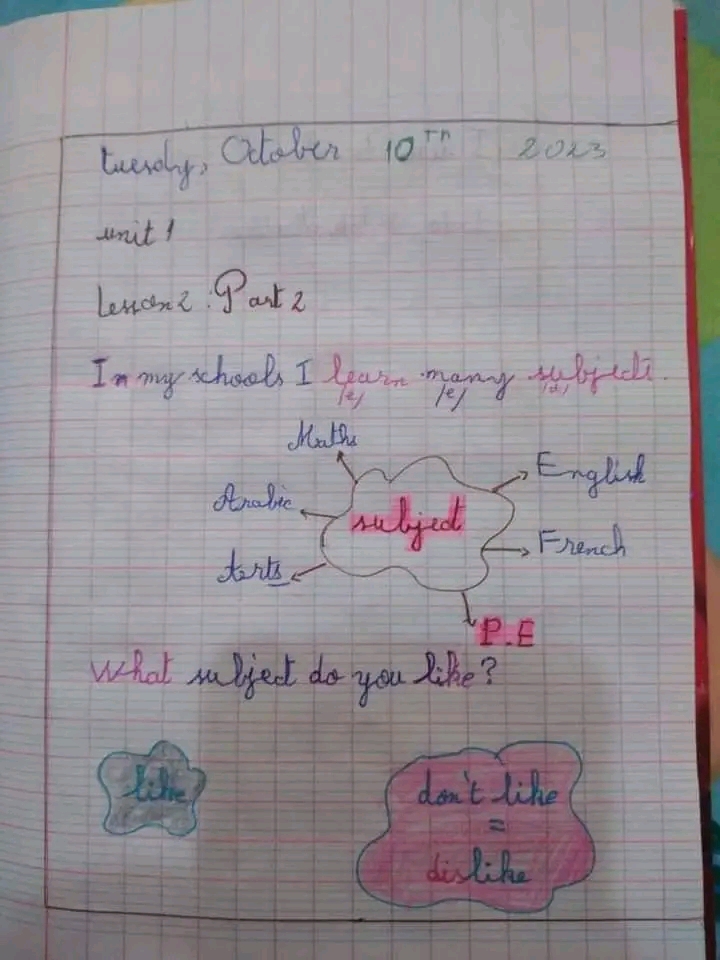 tuesdy, October 10TH 2023
unit 1
Lesson 2 : Part 2
In my schools I learn many subject.
/e/ /e/
Maths
English
Arabic
subject
French
Arts
P.E
What subject do you like?
like
don't like
=
dislike